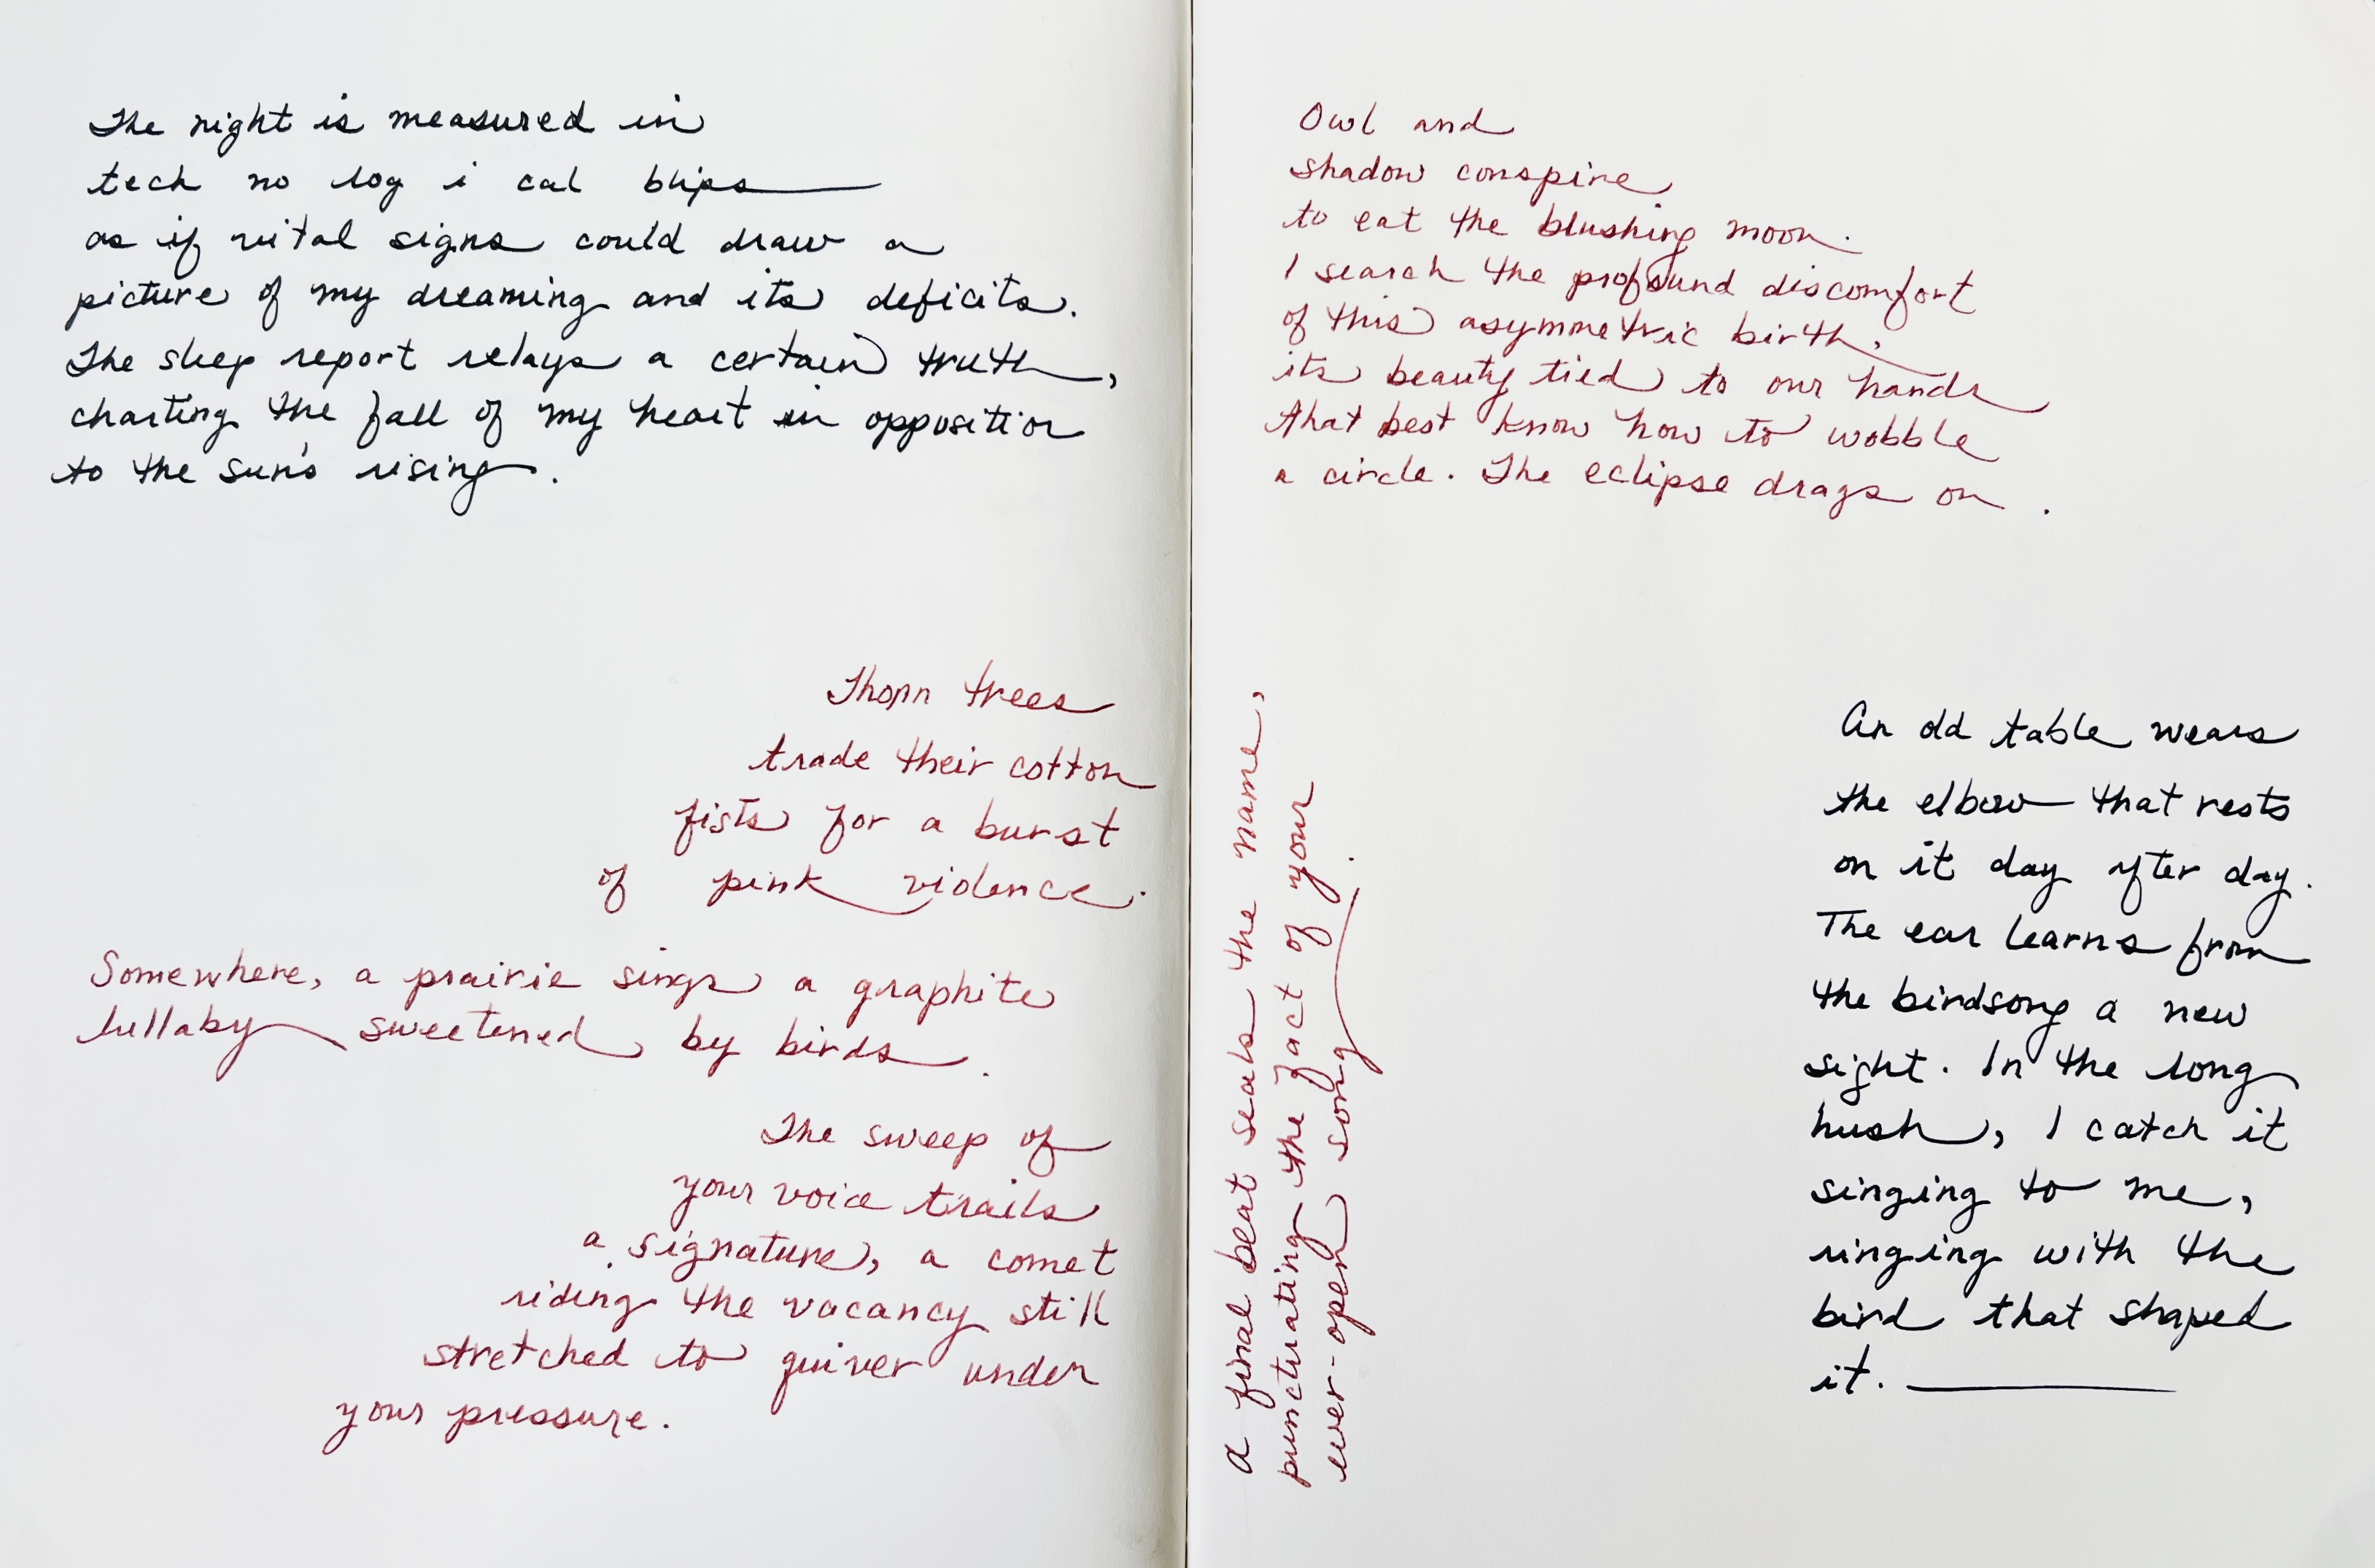 The night is measured in
tech no log i cal blips——
as if vital signs could draw a
picture of my dreaming and its deficits.
The sleep report relays a certain truth,
charting the fall of my heart in opposition
to the sun's rising.
Thorn trees
trade their cotton
fists for a burst
of pink violence.
Somewhere, a prairie sings a graphite
lullaby sweetened by birds.
The sweep of
your voice trails
a signature, a comet
riding the vacancy still
stretched to quiver under
your pressure.
Owl and
shadow conspire
to eat the blushing moon.
I search the profound discomfort
of this asymmetric birth,
its beauty tied to our hands
that best know how to wobble
a circle. The eclipse drags on.
a final beat seals the name,
punctuating the fact of your
ever-open song.
An old table wears
the elbow that rests
on it day after day.
The ear learns from
the birdsong a new
sight. In the long
hush, I catch it
singing to me,
ringing with the
bird that shaped
it.——